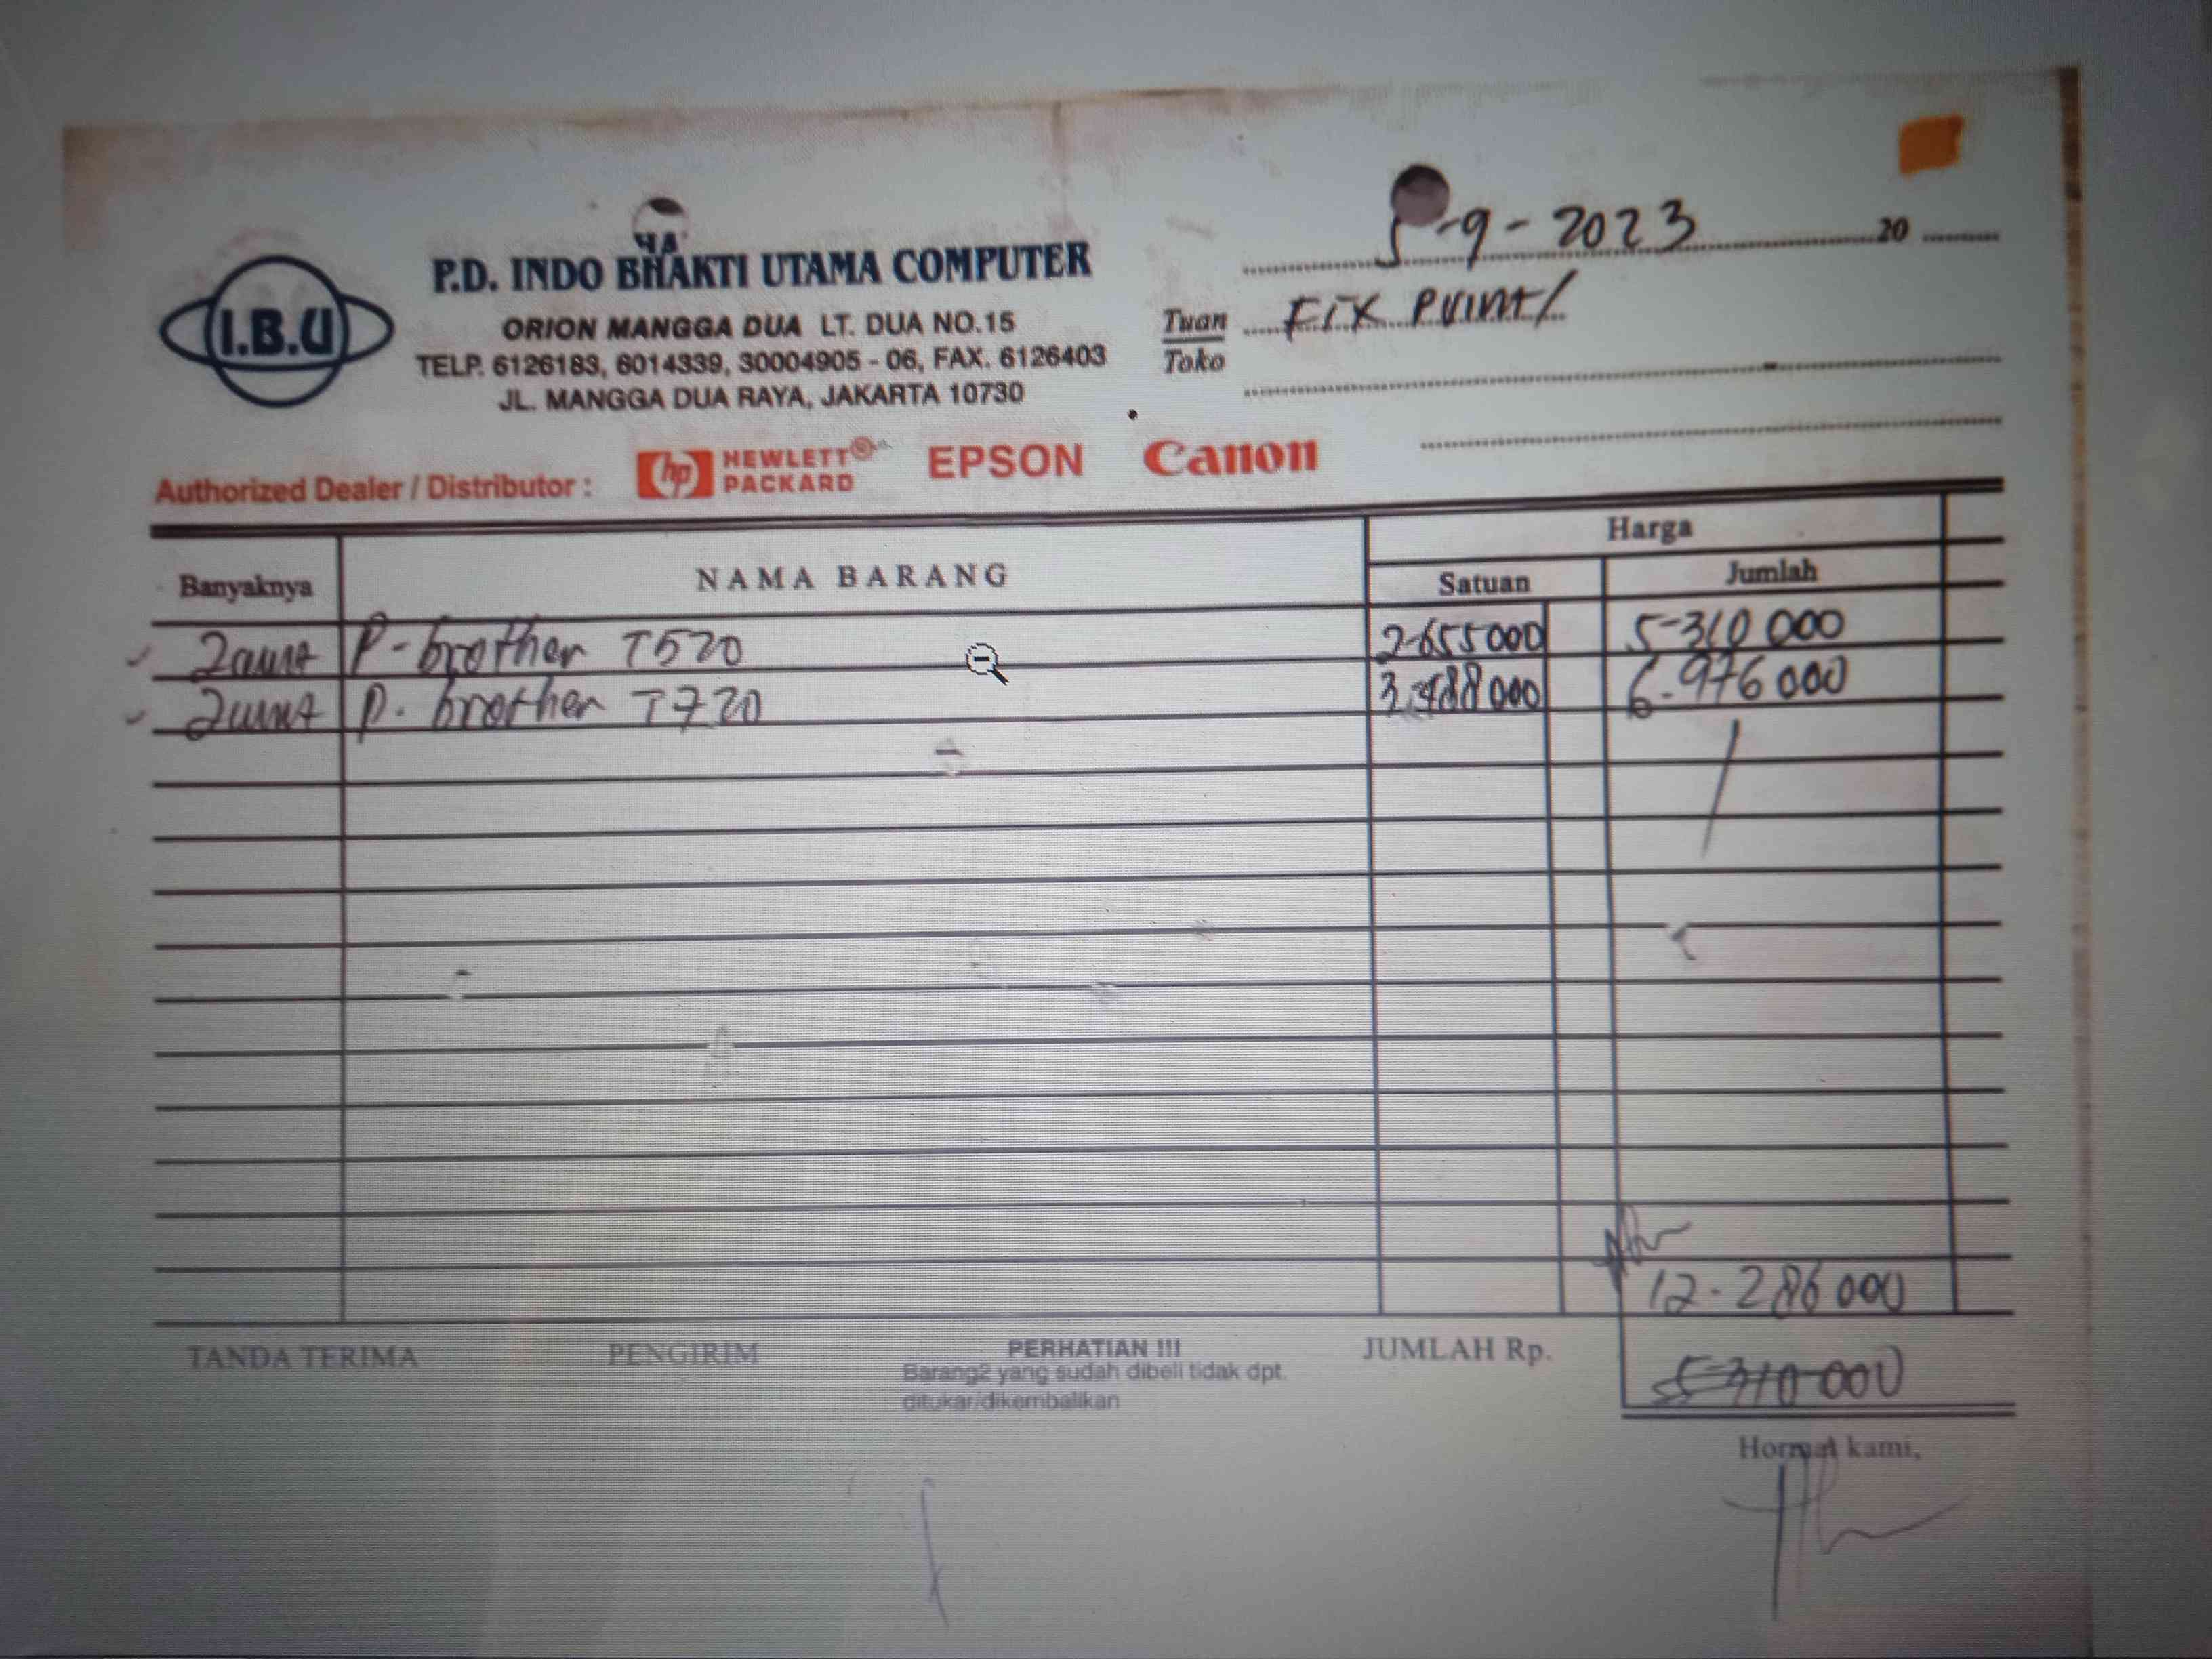 5-9-2023 20
I.B.U
P.D. INDO BHAKTI UTAMA COMPUTER
ORION MANGGA DUA LT. DUA NO.15
TELP. 6126183, 6014339, 30004905 - 06, FAX. 6126403
JL. MANGGA DUA RAYA, JAKARTA 10730
Tuan Fix Print/
Toko
Authorized Dealer / Distributor : hp HEWLETT® PACKARD EPSON Canon
Banyaknya NAMA BARANG Harga
Satuan Jumlah
2 P-brother T520 2.655000 5-310 000
2 P. brother T720 3.488000 6.976 000
12.286 000
TANDA TERIMA PENGIRIM PERHATIAN !!! JUMLAH Rp. 5-310 000
Barang2 yang sudah dibeli tidak dpt.
ditukar/dikembalikan
Hormat kami,